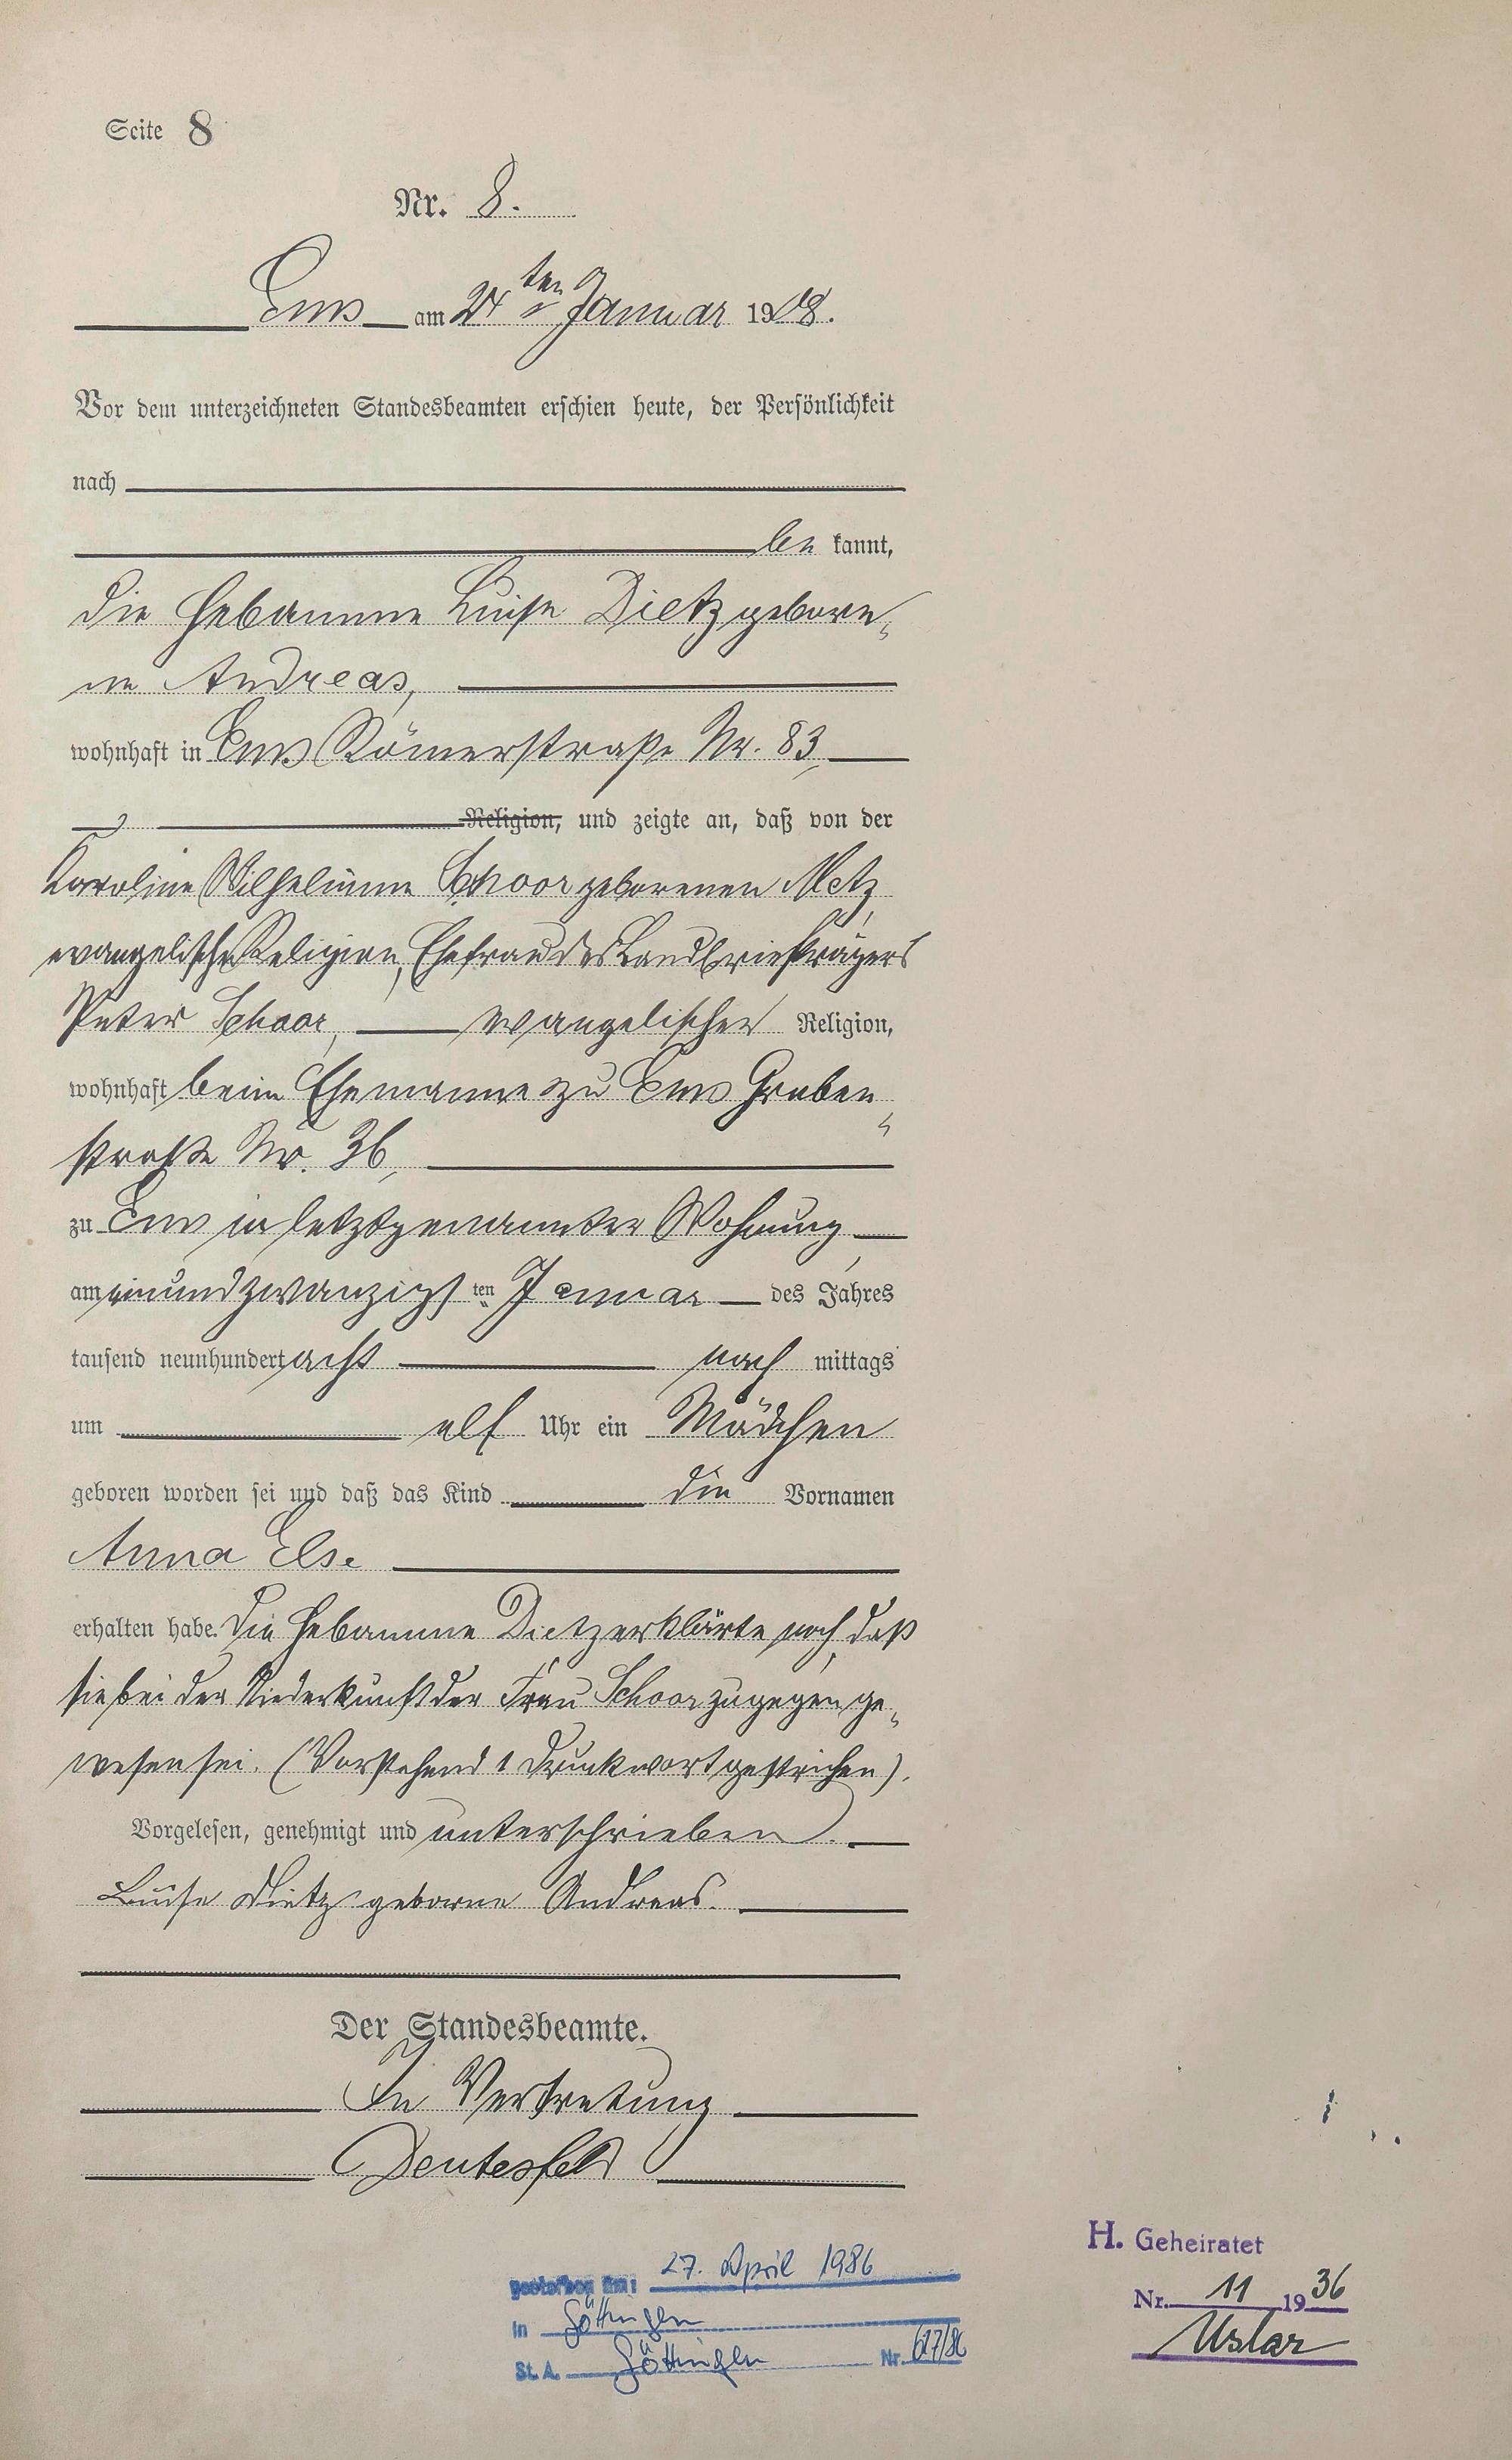 Seite 8
Nr. 8.
Ems am 24ten Januar 1908.
Vor dem unterzeichneten Standesbeamten erschien heute, der Persönlichkeit
nach
be kannt,
die Hebamme Luise Dietz gebore„
ne Andreas,
wohnhaft in Ems Römerstraße Nr. 83,
Religion, und zeigte an, daß von der
Karoline Wilhelmine Schoor geborenen Metz,
evangelischer Religion, Ehefrau des Landbriefträgers
Peter Schoor, evangelischer Religion,
wohnhaft beim Ehemanne zu Ems Graben„
straße Nr. 36,
zu Ems in letztgenannter Wohnung,
am einundzwanzigsten Januar des Jahres
tausend neunhundert acht nach mittags
um elf Uhr ein Mädchen
geboren worden sei und daß das Kind die Vornamen
Anna Else
erhalten habe. Die Hebamme Dietz erklärte noch, daß
sie bei der Niederkunft der Frau Schoor zugegen ge„
wesen sei. (Vorstehend 1 Druckwort gestrichen).
Vorgelesen, genehmigt und unterschrieben.
Luise Dietz geborne Andreas.
Der Standesbeamte.
In Vertretung
Deutesfeld
H. Geheiratet
Nr. 11 1936
Uslar
gestorben am: 27. April 1986
in Göttingen
St. A. Göttingen Nr. 617/86